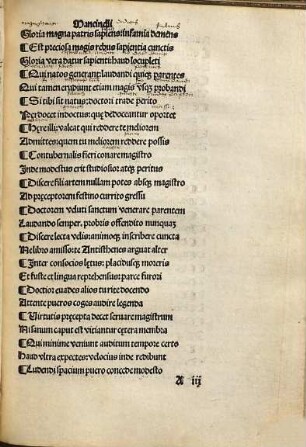 Mancinelli
Gloria magna patris sapiens: infamia demens
¶ Est preciosa magis rebus sapientia cunctis
Gloria vera datur sapienti: haud locupleti
¶ Qui natos generant: laudandi quicq̃ parentes
Qui tamen erudiunt etiam magis vsq̃ probandi
¶ Si tibi sit natus: doctori trade perito
Per docet indoctus: que dedocantur oportet
¶ Chreilli valeat qui reddere te meliorem
Admittes: quem tu meliorem reddere possis
¶ Contubernalis fieri conare magistro
Inde modestus erit studiosior atq̃ peritus
¶ Discere fili artem nullam potes absq̃ magistro
Ad preceptorem festino currito gressu
¶ Doctorem veluti sanctum venerare parentem
Laudando semper. probris offendito nunquaȝ
¶ Discere lecta velis: animoq̃ inscribere cuncta
Ne libro amissorte Antisthenes arguat alter
¶ Inter consocios letus: placidusq̃ moreris
Et fuste et lingua reprehensus: parce furori
¶ Doctior euades alios turire docendo
Attente pueros coges audire legenda
¶ Virtutis precepta decet seruare magistrum
Ni sanum caput est vitiantur cetera membra
¶ Qui minime veniunt auditum tempore certo
Haud vltra expectes: velocius inde redibunt
¶ Ludendi spacium puero concede modesto
A iij